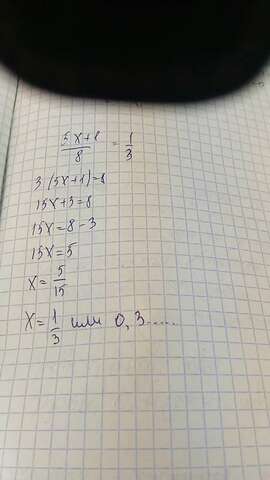 5x+1/8 = 1/3
3·(5x+1)=8
15x+3=8
15x=8-3
15x=5
x=5/15
x=1/3 или 0,3.....